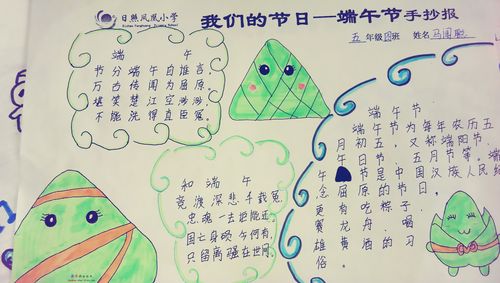 日照凤凰小学
我们的节日—端午节手抄报
五年级 班 姓名
端 午
节分端午自谁言,
万古传闻为屈原。
堪笑楚江空渺渺,
不能洗得直臣冤。
和端午
竞渡深悲千载冤,
忠魂一去讵能还。
国亡身殒今何有,
只留离骚在世间。
端午节
端午节为每年农历五
月初五,又称端阳节、
午日节、五月节等。端
午节是中国汉族人民纪
念屈原的节日,
更有吃粽子,
赛龙舟,喝
雄黄酒的习
俗。